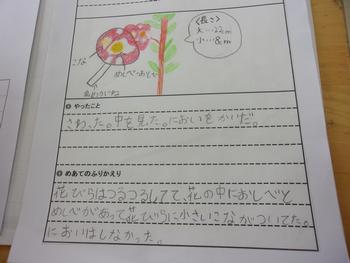 〈長さ〉
大…22cm
小…8cm
こな
めしべ・おしべ
❸ やったこと
さわった。中を見た。においをかいだ。
❹ めあてのふりかえり
花びらはつるつるしてて、花の中におしべと
めしべがあって花びらに小さいこながついてた。
においはしなかった。